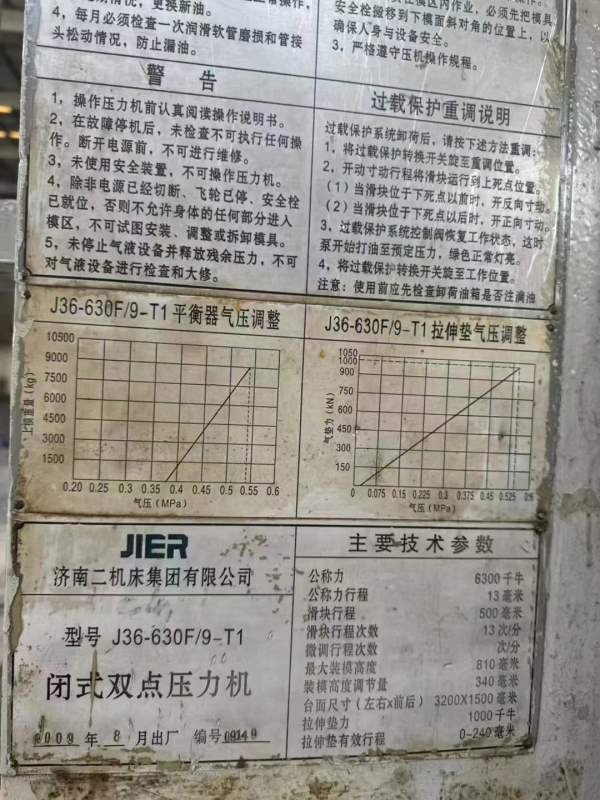 情况，更换新油。
4，每月必须检查一次润滑软管磨损和管接
头松动情况，防止漏油。
区内作业，必须先把模具
安全栓搬移到下模面斜对角的位置上，以
确保人身与设备安全。
3，严格遵守压机操作规程。
警 告
1，操作压力机前认真阅读操作说明书。
2，在故障停机后，未检查不可执行任何操
作。断开电源前，不可进行维修。
3，未使用安全装置，不可操作压力机。
4，除非电源已经切断、飞轮已停、安全栓
已就位，否则不允许身体的任何部分进入
模区，不可试图安装、调整或拆卸模具。
5，未停止气液设备并释放残余压力，不可
对气液设备进行检查和大修。
过载保护重调说明
过载保护系统卸荷后，请按下述方法重调：
1，将过载保护转换开关旋至重调位置。
2，开动寸动行程将滑块运行到上死点位置。
（1）当滑块位于下死点以前时，开反向寸动。
（2）当滑块位于下死点以后时，开正向寸动。
3，过载保护系统控制阀恢复工作状态，这时
泵开始打油至预定压力，绿色正常灯亮。
4，将过载保护转换开关旋至工作位置。
注意：使用前应先检查卸荷油箱是否注满油
J36-630F/9-T1平衡器气压调整
上模重量(kg)
10500
9000
7500
6000
4500
3000
1500
0.20 0.25 0.3 0.35 0.4 0.45 0.5 0.55 0.6
气压(MPa)
J36-630F/9-T1拉伸垫气压调整
气垫力(kN)
1050
1000
900
750
600
450
300
150
0 0.075 0.15 0.225 0.3 0.375 0.45 0.525 0.6
气压(MPa)
JIER
济南二机床集团有限公司
型号 J36-630F/9-T1
闭式双点压力机
2009 年 8 月出厂 编号09149
主要技术参数
公称力 6300千牛
公称力行程 13毫米
滑块行程 500毫米
滑块行程次数 13次/分
微调行程次数 次/分
最大装模高度 810毫米
装模高度调节量 340毫米
台面尺寸（左右x前后） 3200X1500毫米
拉伸垫力 1000千牛
拉伸垫有效行程 0-240毫米